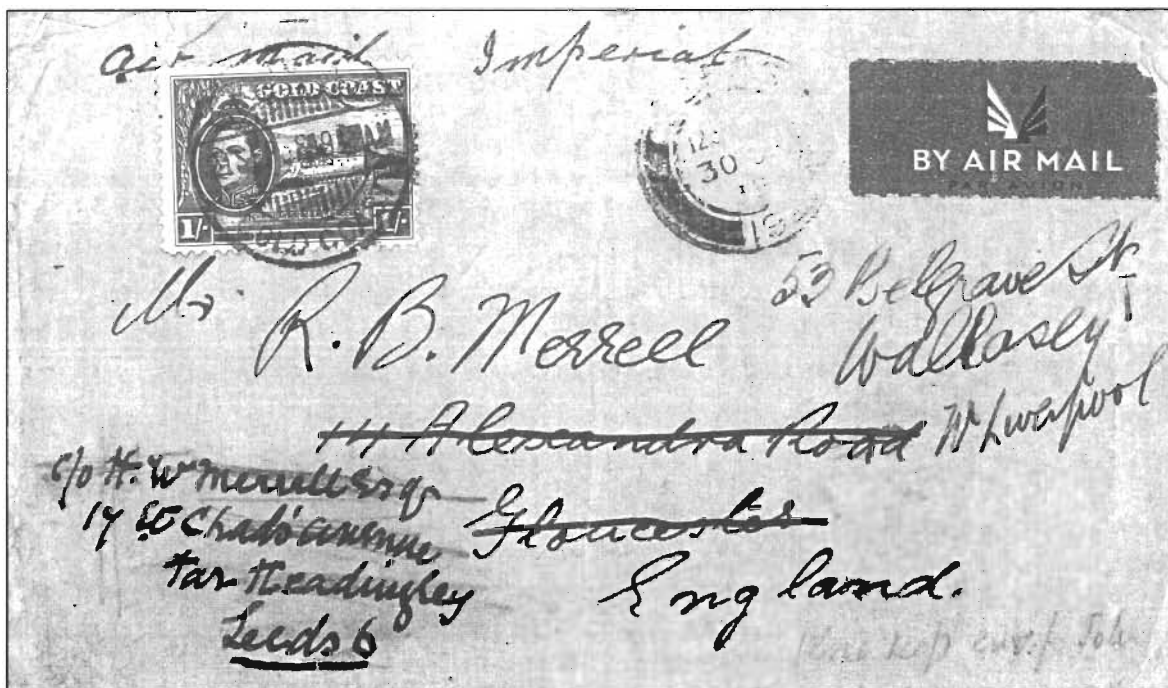 air mail Imperial
GOLD COAST
1/- 1/-
30
BY AIR MAIL
PAR AVION
Mr R. B. Merrell
53 Belgrave St
Wallasey
Nr Liverpool
14 Alexandra Road
Gloucester
England.
c/o H. W Merrell Esq
17 St Chads avenue
Far Headingley
Leeds 6